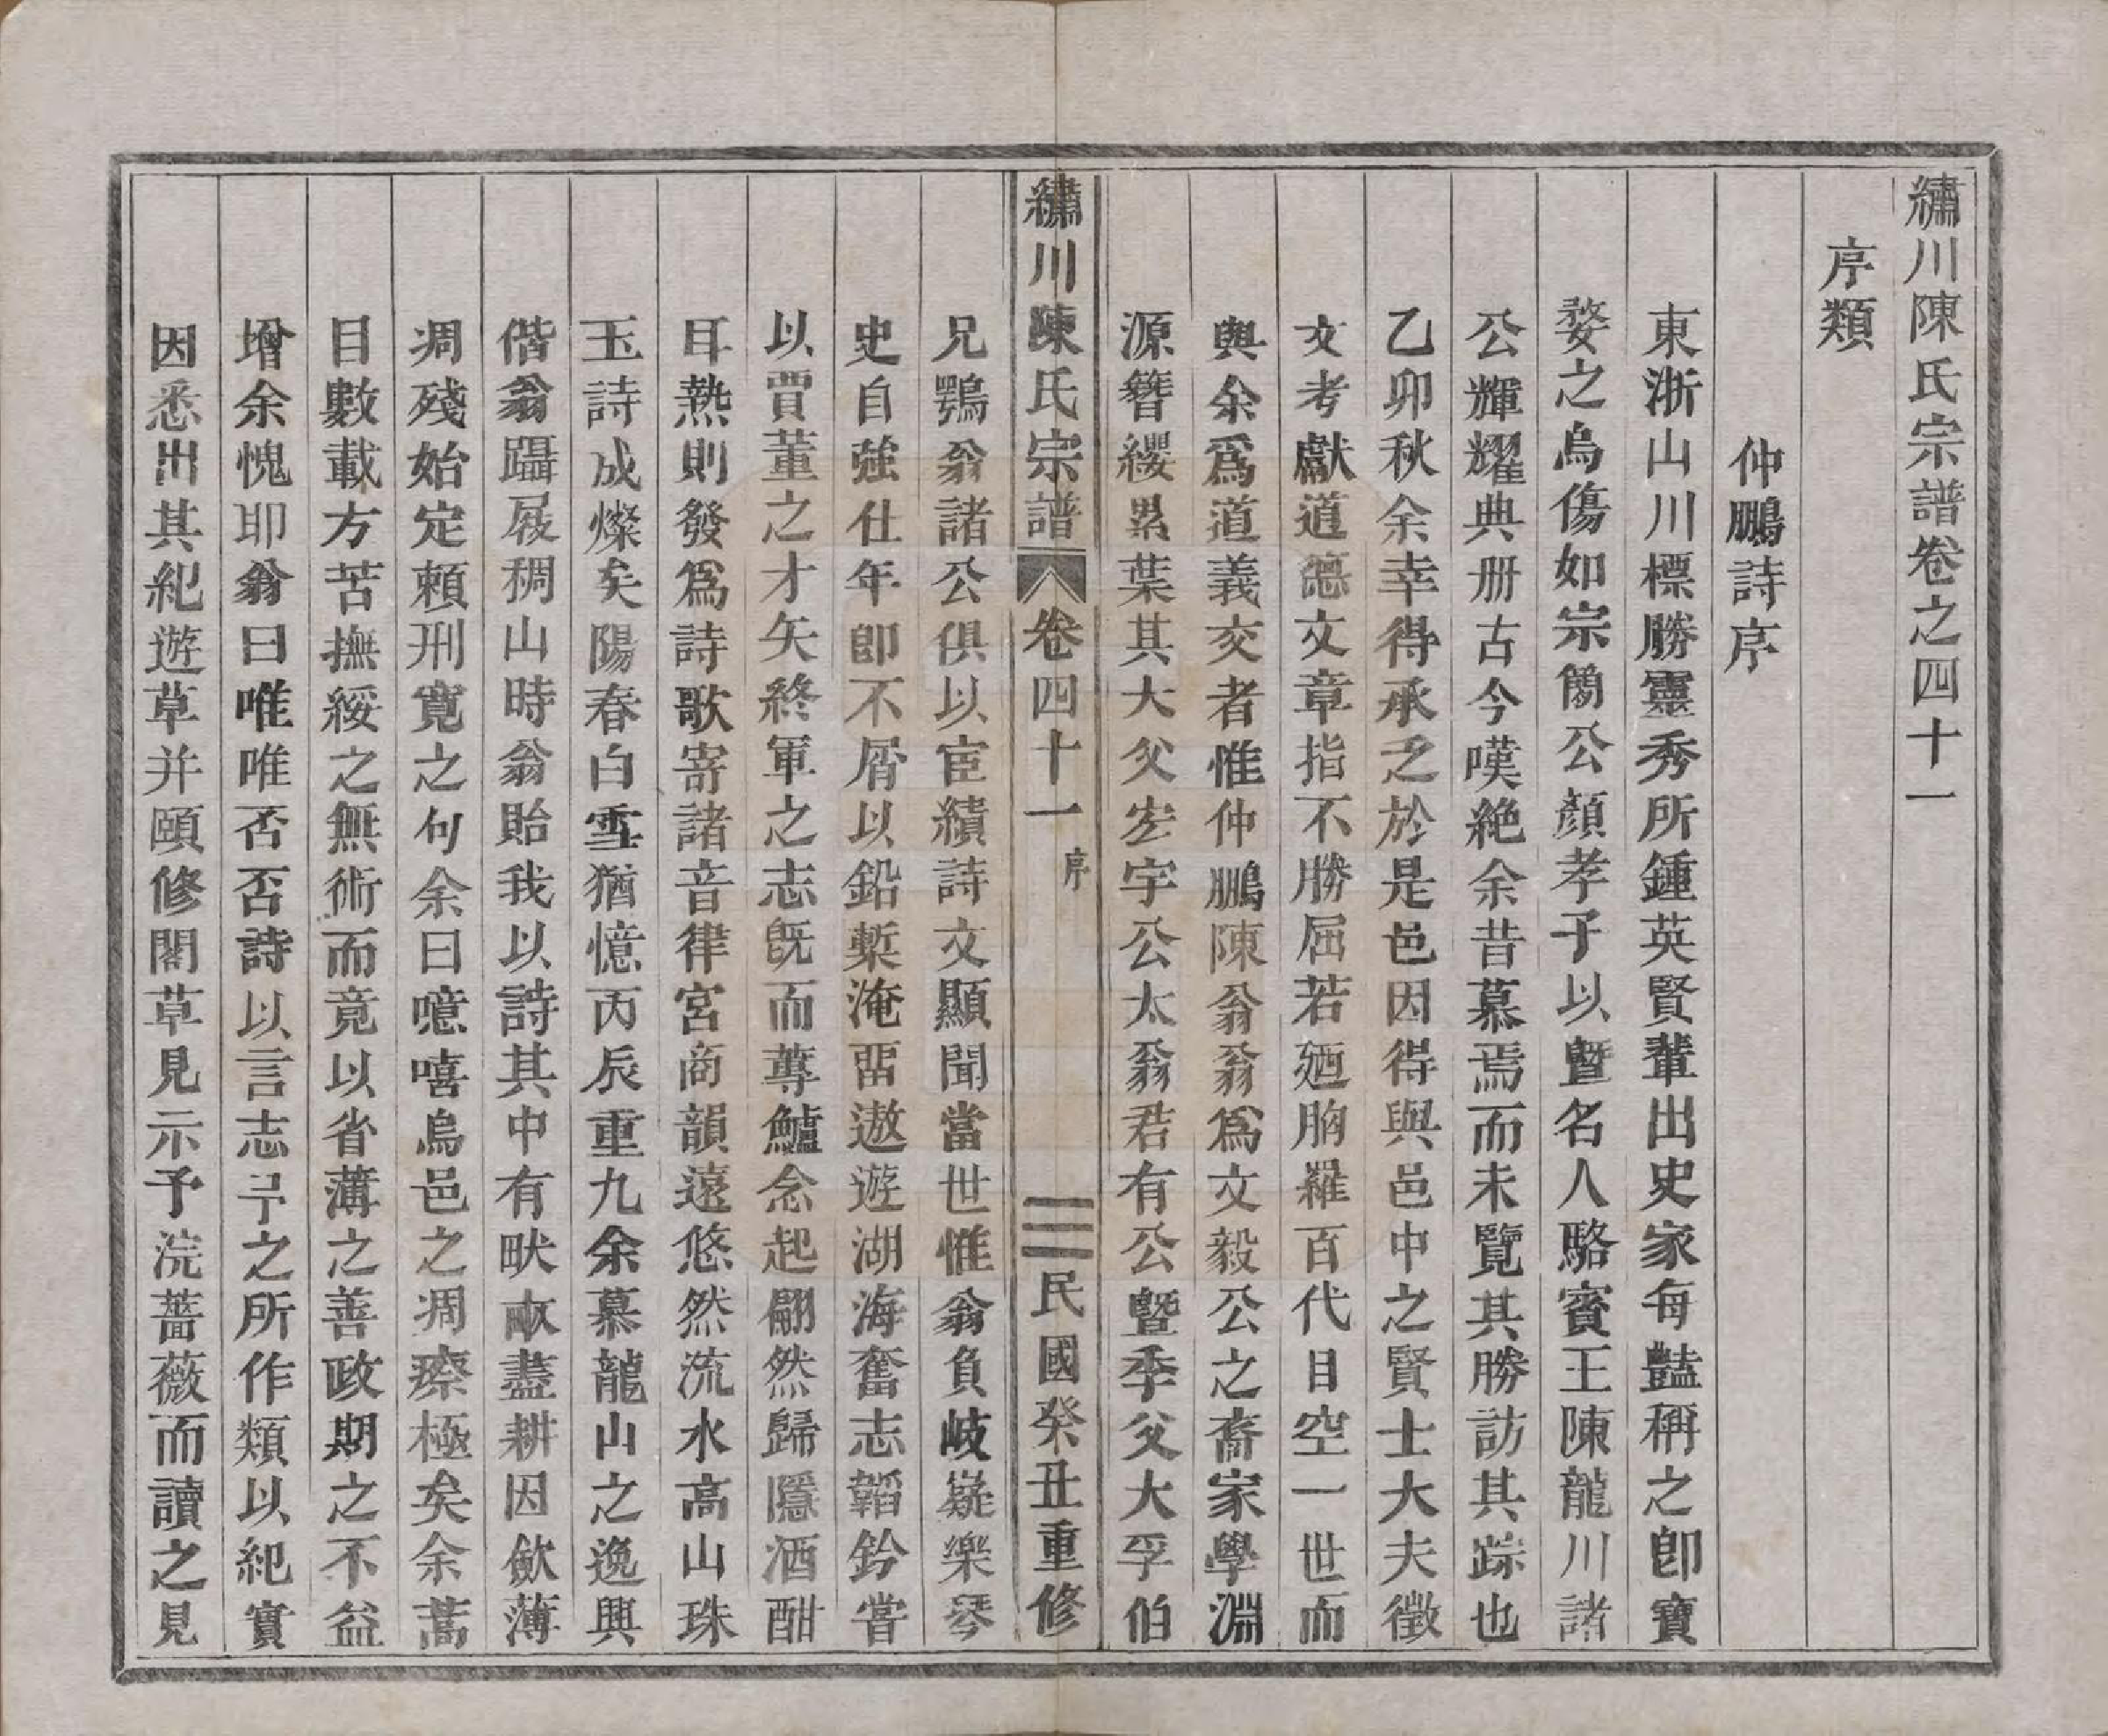 繡川陳氏宗譜卷之四十一
序類
仲鵬詩序
東浙山川標勝靈秀所鍾英賢輩出史家每豔稱之卽寶
婺之烏傷如宗簡公顏孝子以曁名人駱賓王陳龍川諸
公輝耀典册古今嘆絶余昔慕焉而未覽其勝訪其踪也
乙卯秋余幸得承乏於是邑因得與邑中之賢士大夫徵
文考獻道德文章指不勝屈若廼胸羅百代目空一世而
與余爲道義交者惟仲鵬陳翁翁爲文毅公之裔家學淵
源簪纓累葉其大父宏宇公太翁君有公曁季父大孚伯
繡川陳氏宗譜 卷四十一 序 民國癸丑重修
兄鶚翁諸公俱以宦績詩文顯聞當世惟翁負岐嶷樂琴
史自強仕年卽不屑以鉛槧淹畱遨遊湖海奮志韜鈐嘗
以賈董之才矢終軍之志旣而蓴鱸念起翩然歸隱酒酣
耳熱則發爲詩歌寄諸音律宮商韻遠悠然流水高山珠
玉詩成燦矣陽春白雪猶憶丙辰重九余慕龍山之逸興
偕翁躡屐稠山時翁貽我以詩其中有畎畝盡耕因歛薄
凋殘始定賴刑寬之句余曰噫嘻烏邑之凋瘵極矣余蒿
目數載方苦撫綏之無術而竟以省薄之善政期之不益
增余愧耶翁曰唯唯否否詩以言志予之所作類以紀實
因悉出其紀遊草并頤修閣草見示予浣薔薇而讀之見